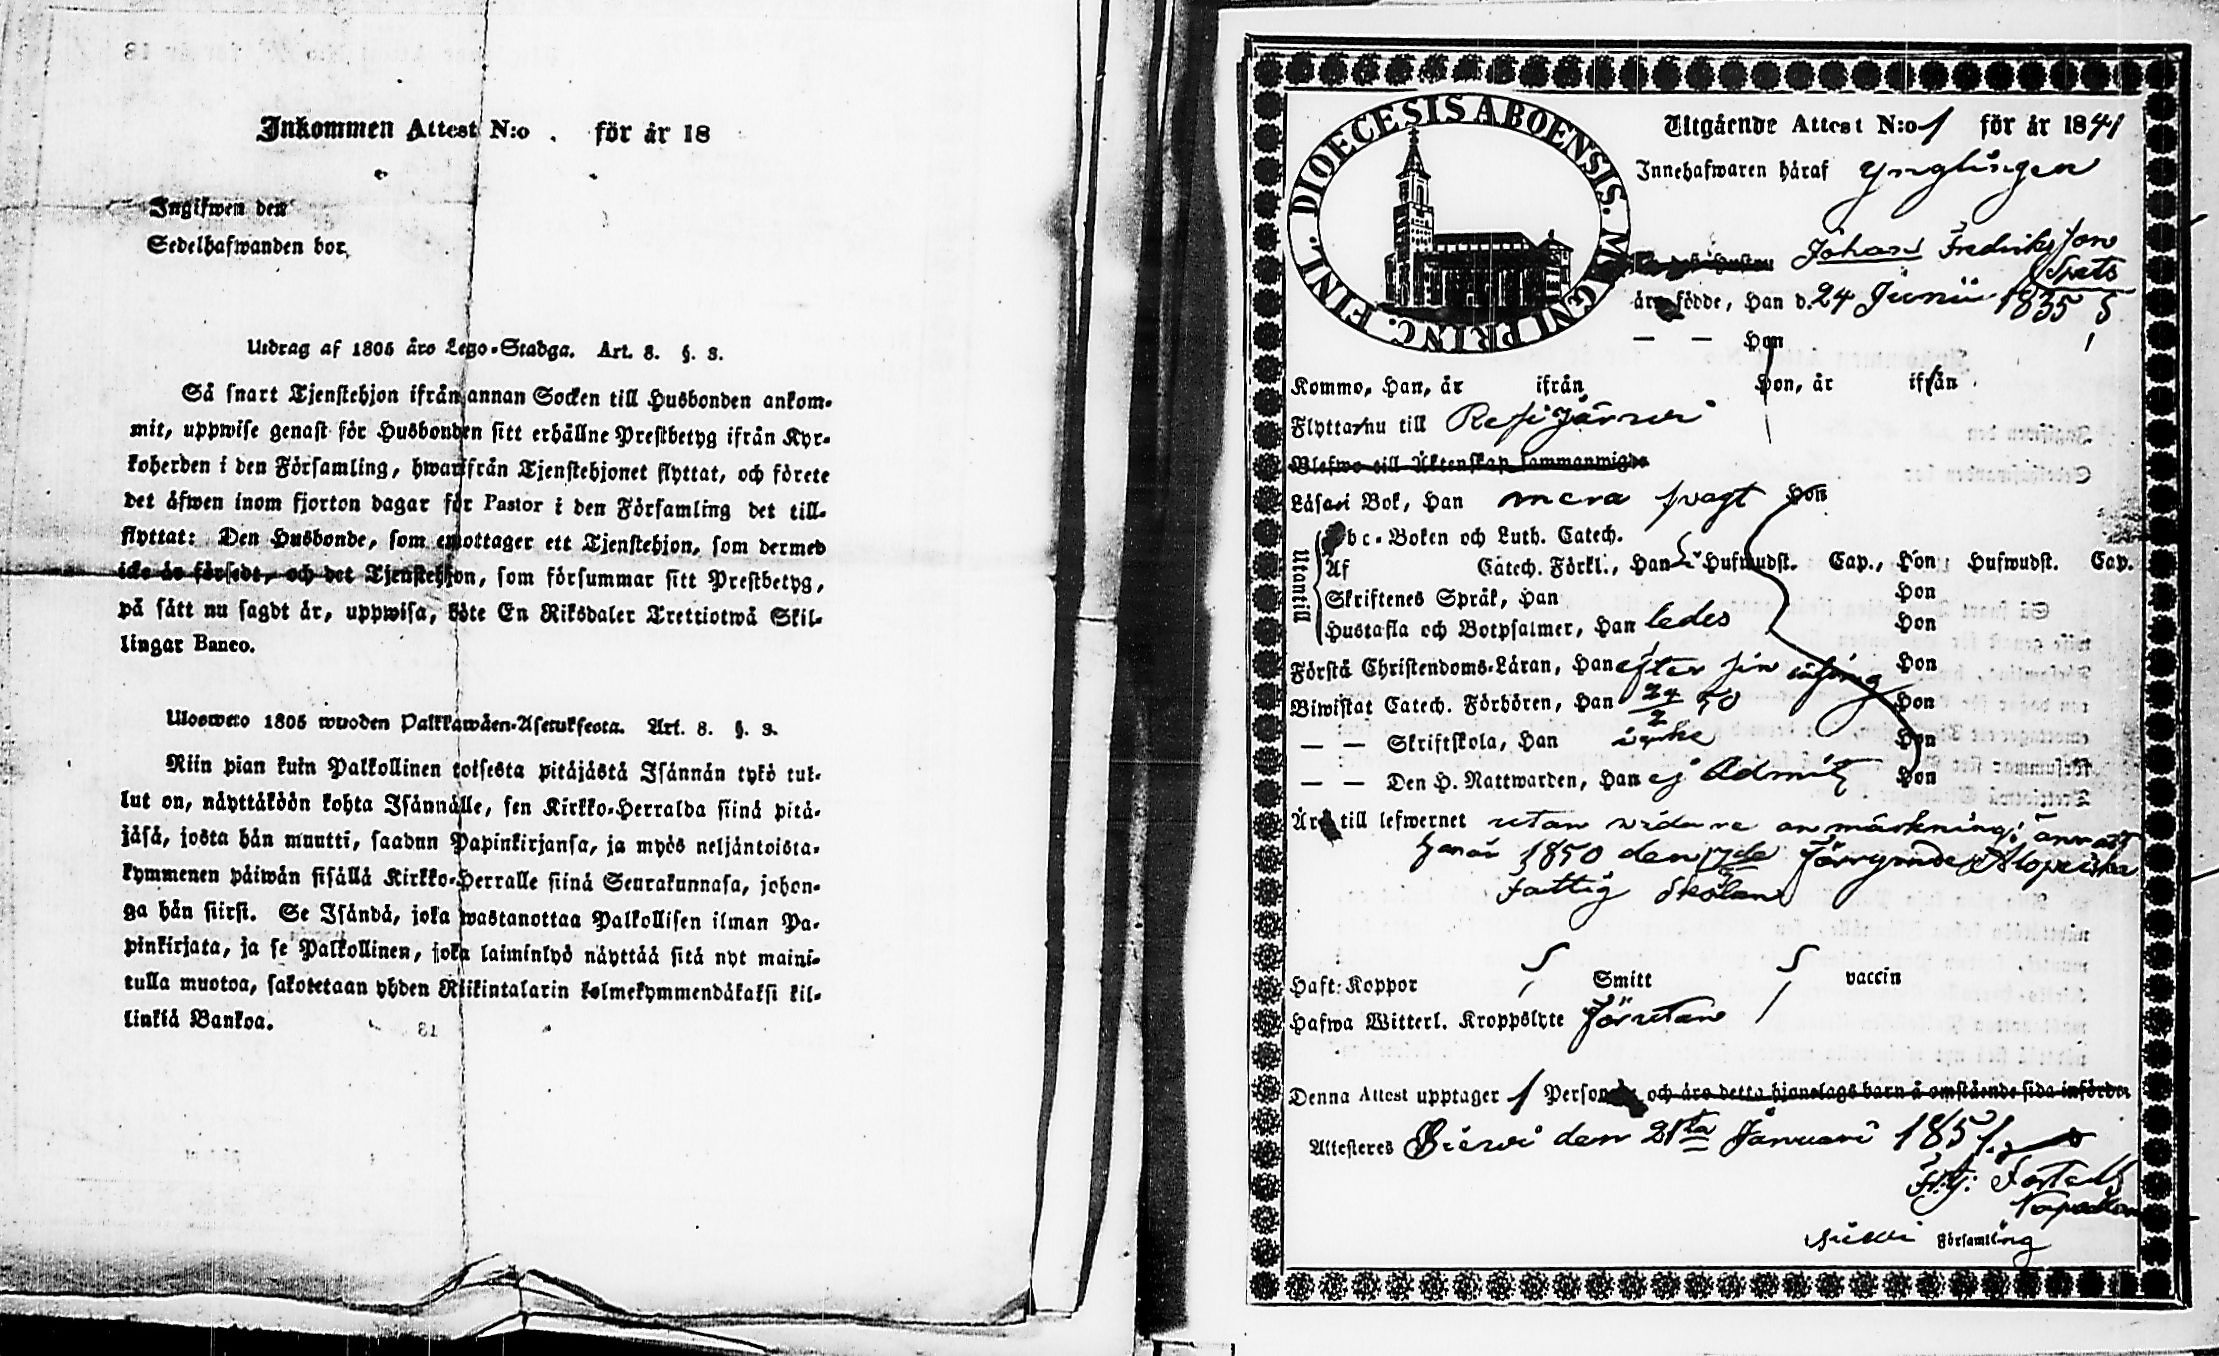 Inkommen Attest N:o . för år 18
Ingifwen den
Sedelhafwanden bor
Utdrag af 1805 års Lego-Stadga. Art. 8. §. 3.
Så snart Tjenstehjon ifrån annan Socken till Husbonden ankom-
mit, uppwise genast för Husbonden sitt erhållne Prestbetyg ifrån Kyr-
koherden i den Församling, hwarifrån Tjenstehjonet flyttat, och förete
det äfwen inom fjorton dagar för Pastor i den Församling det till-
flyttat: Den Husbonde, som emottager ett Tjenstehjon, som dermed
icke är försedt, och det Tjenstehjon, som försummar sitt Prestbetyg,
på sätt nu sagdt är, uppwisa, böte En Riksdaler Trettiotwå Skil-
lingar Banco.
Ulosweto 1805 wuoden Palkkawäen-Asetuksesta. Art. 8. §. 3.
Niin pian kuin Palkollinen toisesta pitäjästä Isännän tykö tul-
lut on, näyttäköön kohta Isännälle, sen Kirkko-Herralda siinä pitä-
jäsä, josta hän muutti, saadun Papinkirjansa, ja myös neljäntoista-
kymmenen päiwän sisällä Kirkko-Herralle siinä Seurakunnasa, johon-
ga hän siirsi. Se Isändä, joka wastanottaa Palkollisen ilman Pa-
pinkirjata, ja se Palkollinen, joka laiminlyö näyttää sitä nyt maini-
tulla muotoa, sakotetaan yhden Riikintalarin kolmekymmendäkaksi kil-
linkiä Bankoa.
DIOECESIS ABOENSIS. MAGNI PRINC. FINL.
Utgående Attest N:o 1 för år 1841
Innehafwaren häraf Ynglingen
Johan Fredriksson
Spets
äro födde, Han d. 24 Junii 1835
— — Hon
Kommo, Han, år ifrån Hon, år ifrån
Flytta nu till Pesijärwi
Blefwo till Äktenskap sammanwigde
Läsa i Bok, Han mera swagt Hon
Utantill
Abc-Boken och Luth. Catech.
Af Catech. Förkl., Han Hufwudst. Cap., Hon Hufwudst. Cap.
Skriftenes Språk, Han Hon
Hustafla och Botpsalmer, Han ledes Hon
Förstå Christendoms-Läran, Han efter sin Hon
Biwistat Catech. Förhören, Han 24/2 50 Hon
— — Skriftskola, Han icke Hon
— — Den H. Nattwarden, Han ej Admit. Hon
Äro till lefwernet utan widare anmärkning, än att
han år 1850 den 17de
Fattig Skolan
Haft: Koppor Smitt vaccin
Hafwa Witterl. Kroppslyte Förutan
Denna Attest upptager 1 Person och äro detta hjonelags barn å omstående sida införda.
Attesteres den 21sta Januari 1851.
Församling